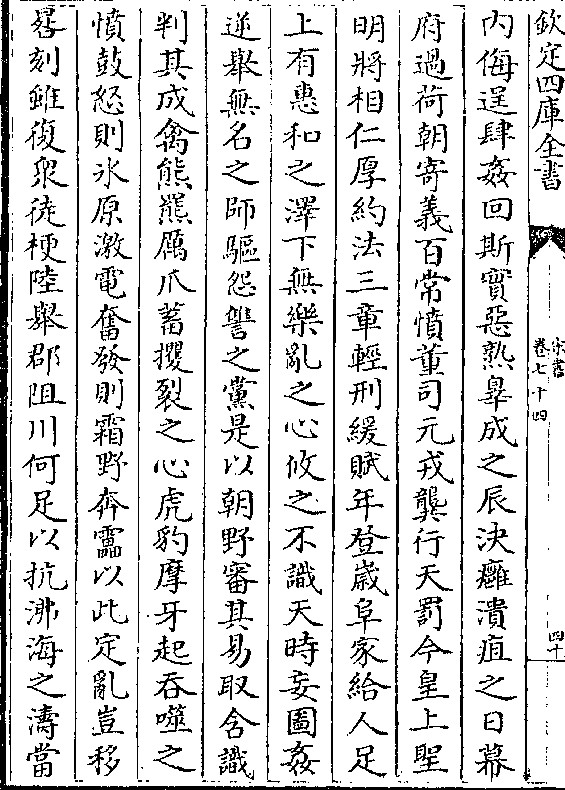 欽定四庫全書
宋書
卷七十四
四十
內侮逞肆姦回斯實惡熟辠成之辰決癰潰疽之日幕
府過荷朝寄義百常憤董司元戎龔行天罰今皇上聖
明將相仁厚約法三章輕刑緩賦年登歲阜家給人足
上有惠和之澤下無樂亂之心攸之不識天時妄圖姦
逆舉無名之師驅怨讐之黨是以朝野審其易取含識
判其成禽熊羆厲爪蓄攫裂之心虎豹摩牙起吞噬之
憤鼓怒則氷原激電奮發則霜野奔靁以此定亂豈移
晷刻雖復衆徒梗陸舉郡阻川何足以抗沸海之濤當